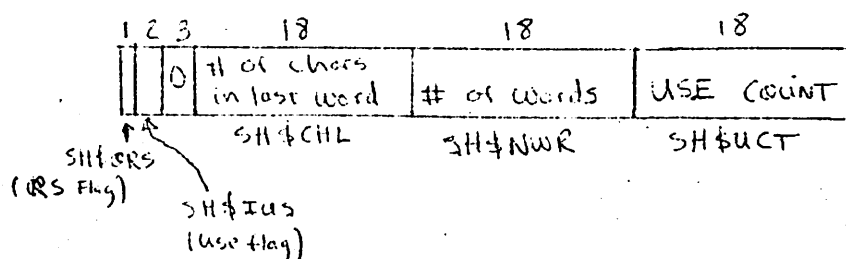 1 2 3 18 18 18
0 # of chars
in last word # of words USE COUNT
SH$CHL SH$NWR SH$UCT
(QRS Flag)
SH$IUS
(use flag)